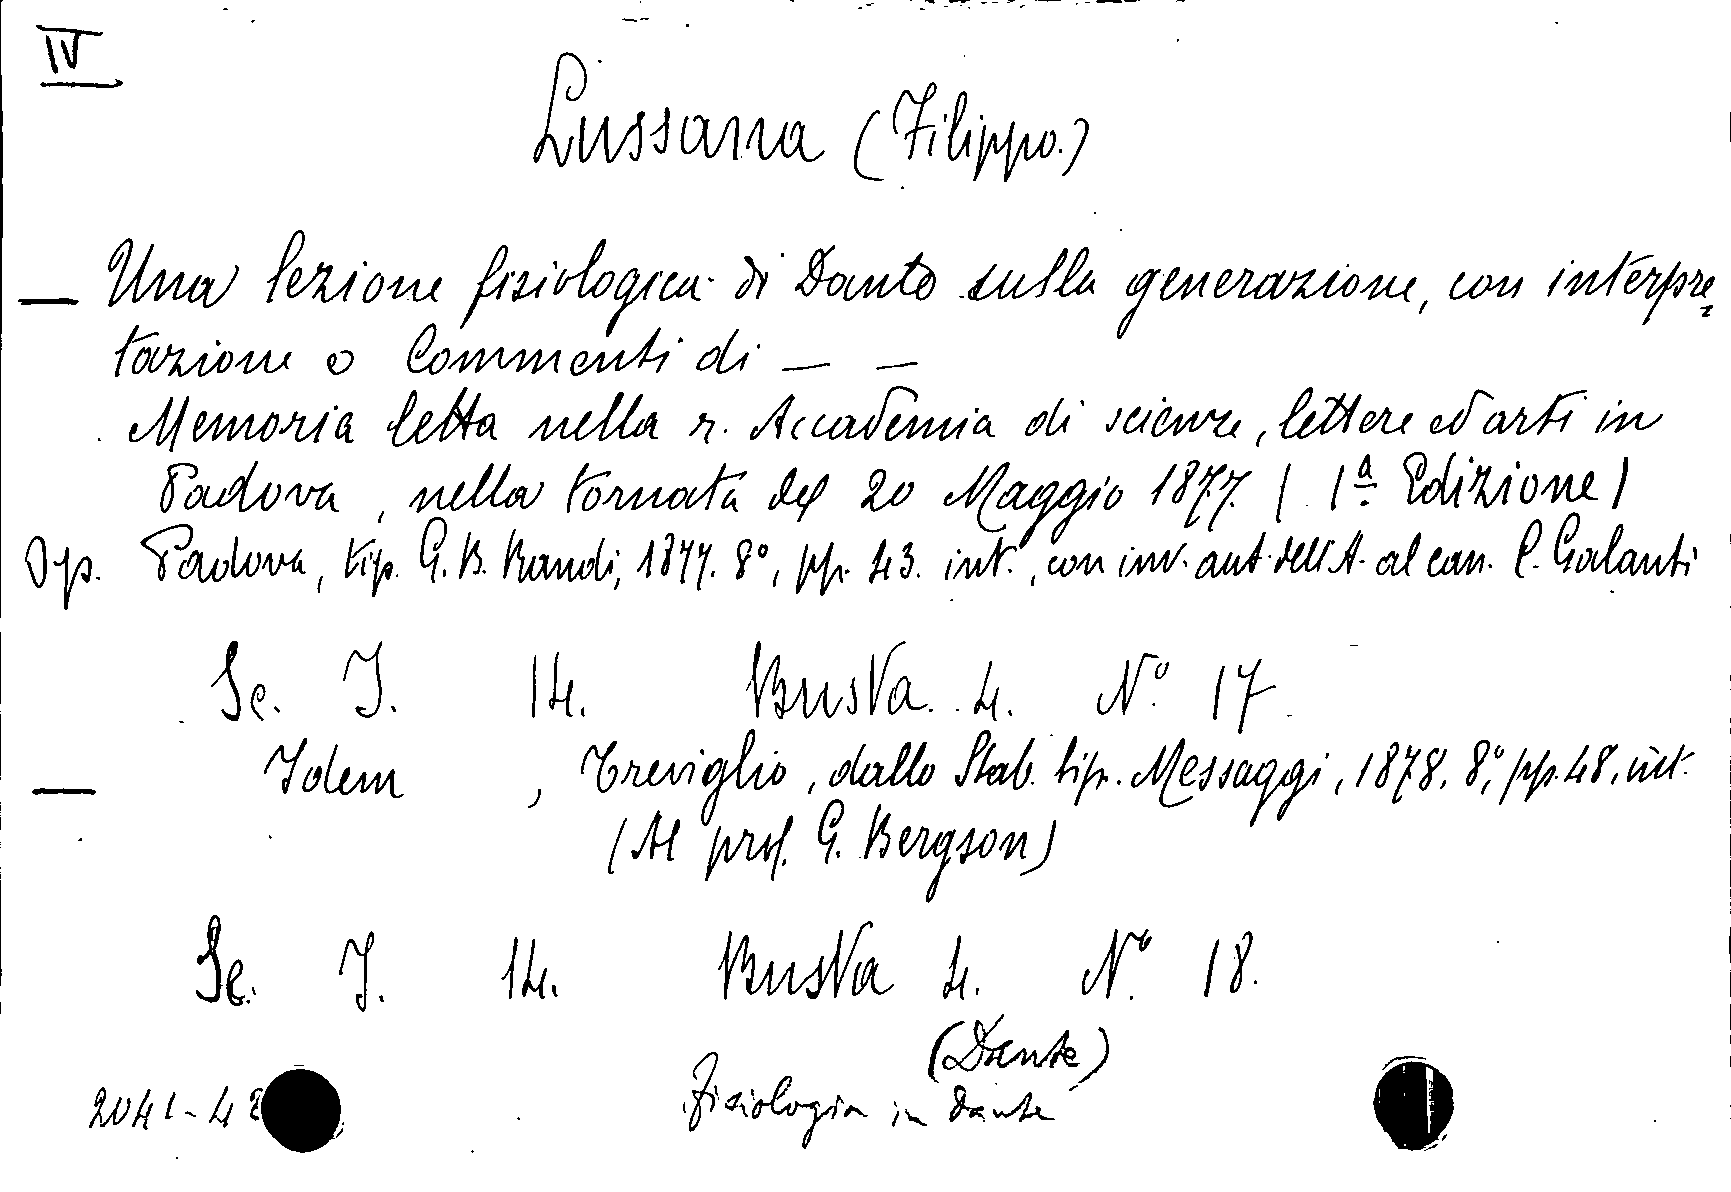 IV
Lussana (Filippo.)
— Una lezione fisiologica di Dante sulla generazione, con interpre-
tazione e Commenti di — —
Memoria letta nella r. Accademia di scienze, lettere ed arti in
Padova, nella tornata del 20 Maggio 1877. (1ª Edizione)
Op. Padova, tip. G. B. Randi, 1877. 8°, pp. 43. int., con inv. aut. dell'A. al can. C. Galanti
Sc. I. 14. Busta. 4. N° 17
— Idem, Treviglio, dallo Stab. tip. Messaggi, 1878. 8°, pp. 48, int.
(Al prof. G. Bergson)
Sc. I. 14. Busta 4. N° 18.
(Dante)
Fisiologia in Dante
2041-42